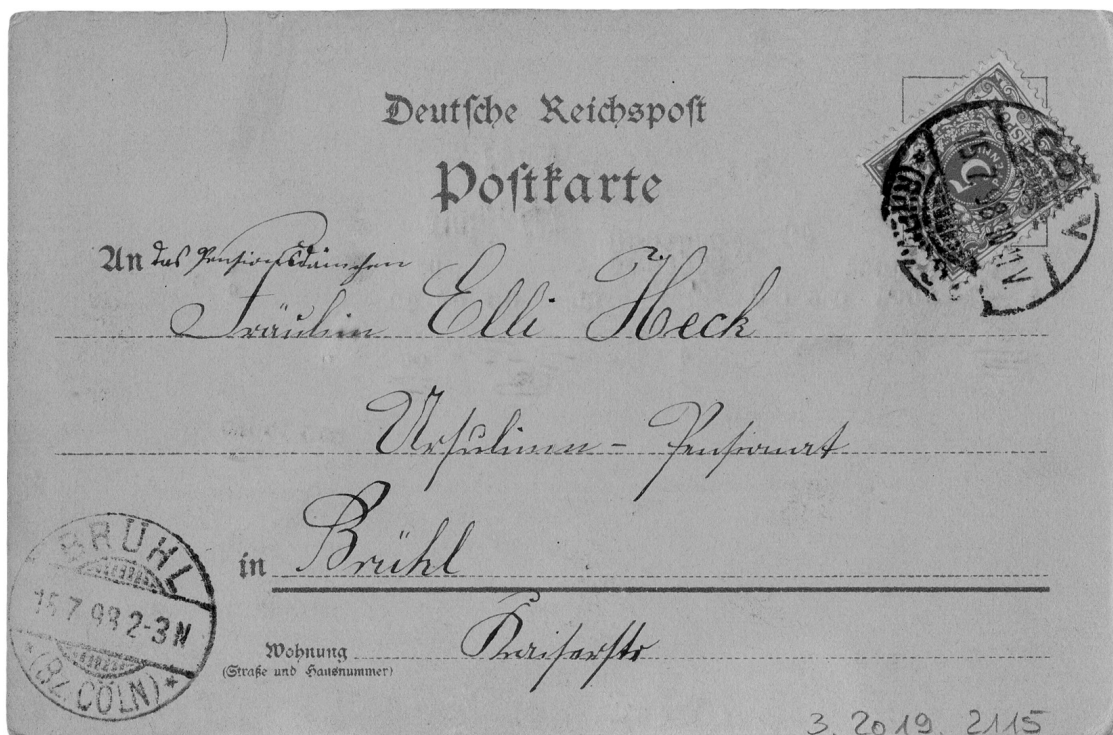 Deutsche Reichspost
Postkarte
An das Pensionsdämchen
Fräulein Elli Heck
Ursulinen-Pensionat
in Brühl
Wohnung Kaiserstr
(Straße und Hausnummer)
CÖLN
15.7.98
5
BRÜHL
15.7.98 2-3N
*(BZ.CÖLN)*
3.2019.2115